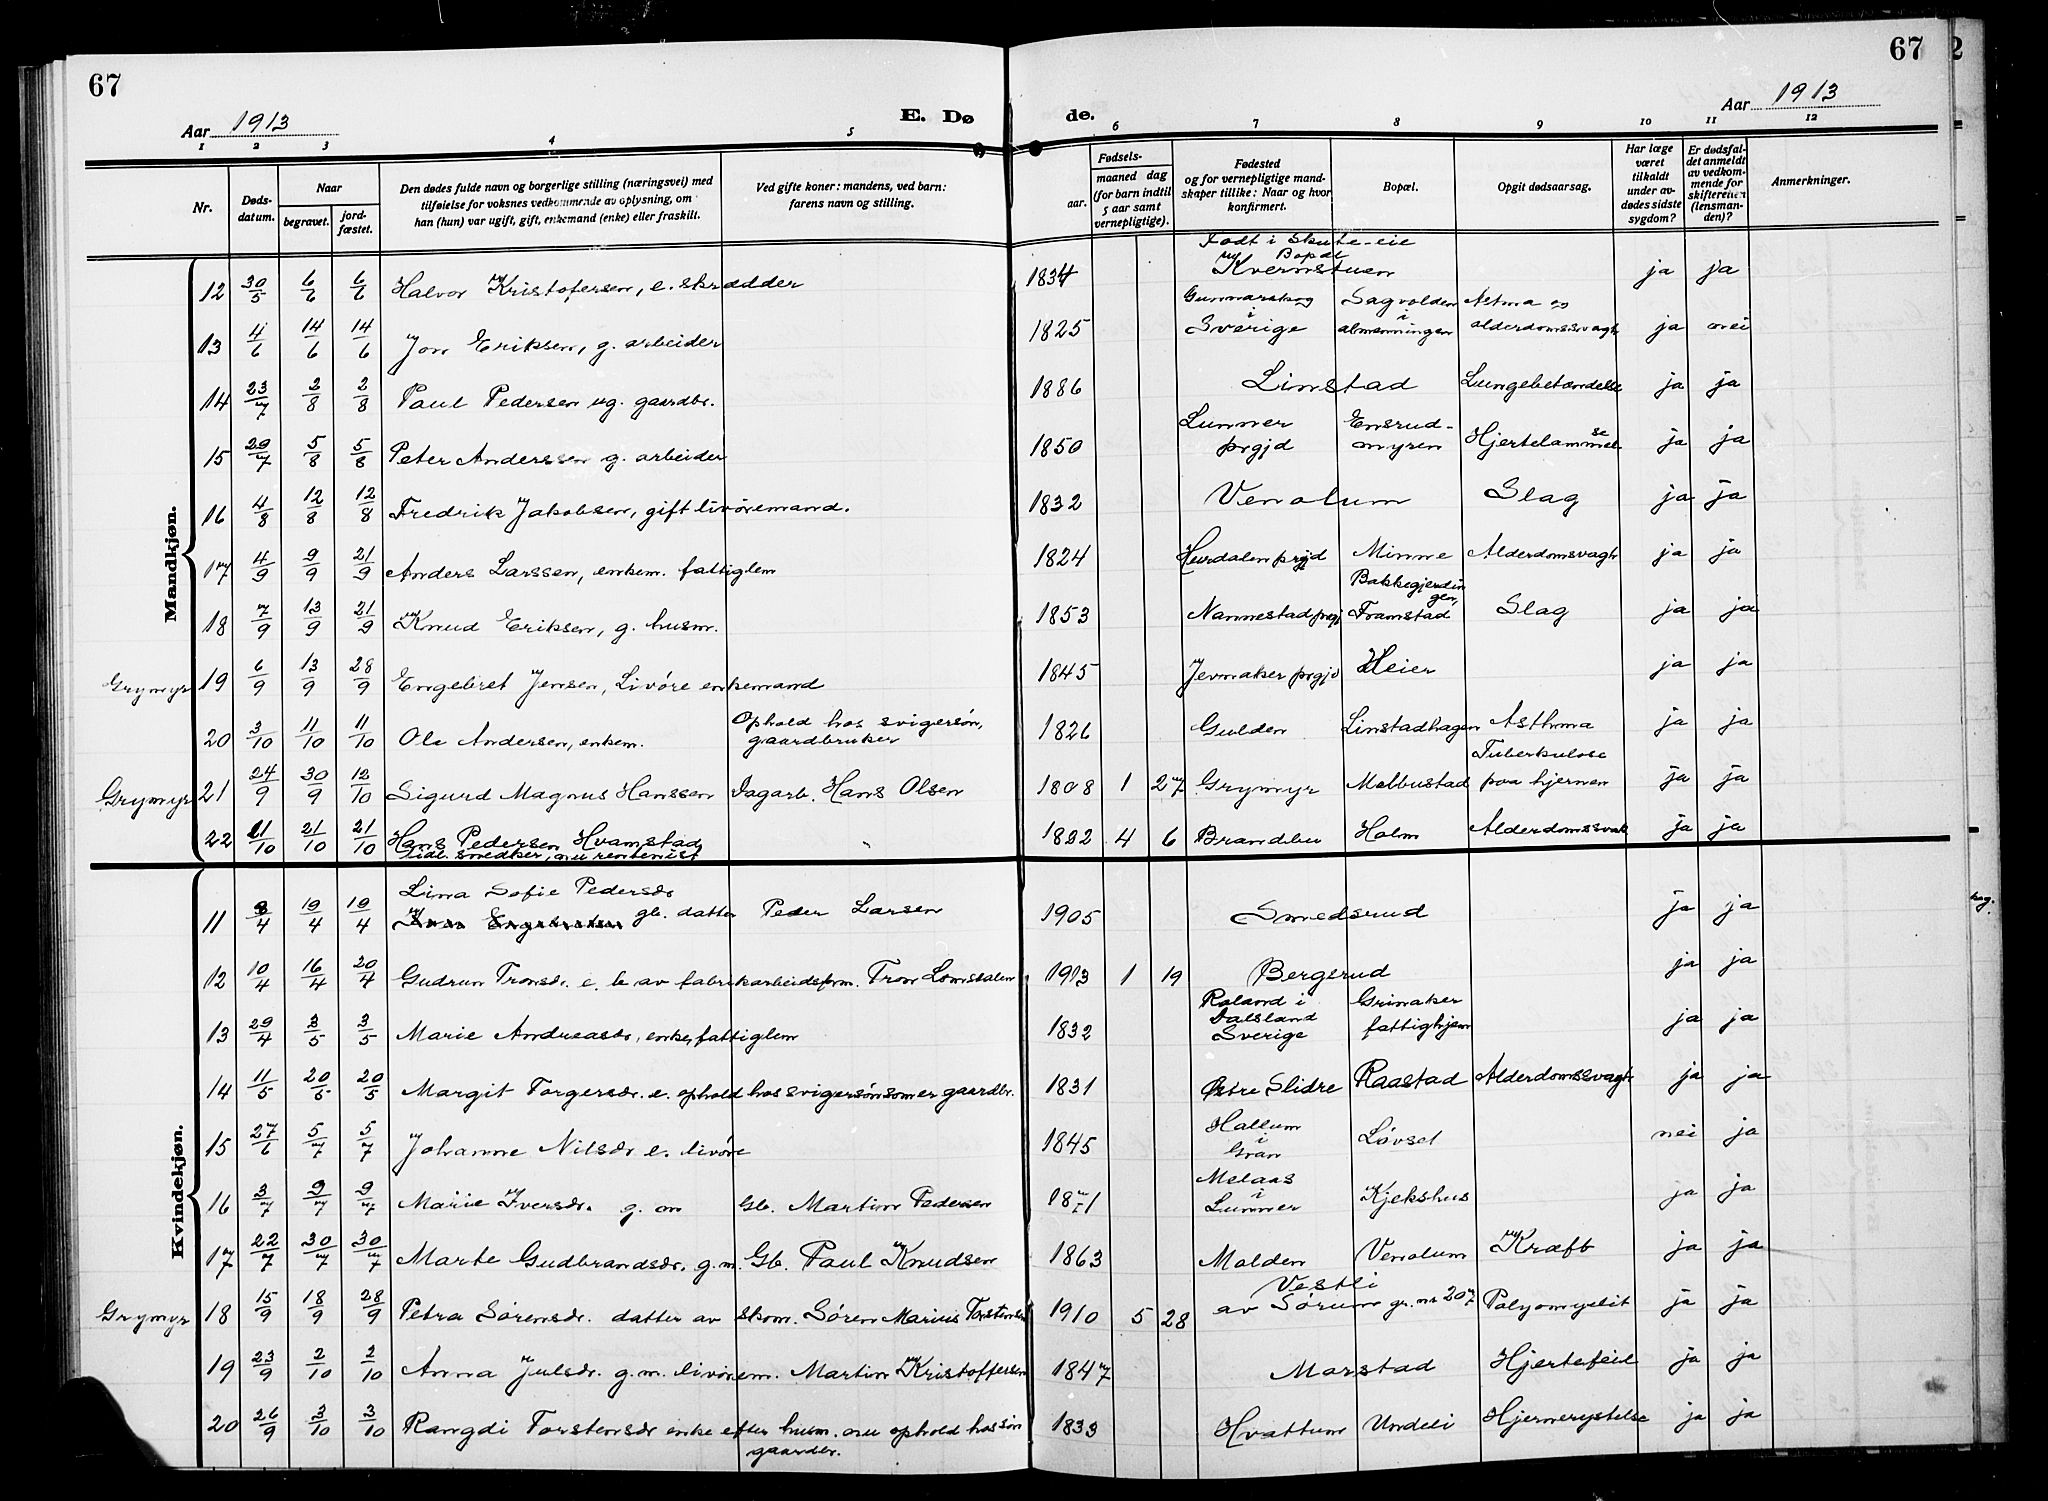 67
Aar 1913
E. Dø
1 2 3 4 5
Nr.
Døds-
datum.
Naar
begravet.
jord-
fæstet.
Den dødes fulde navn og borgerlige stilling (næringsvei) med
tilføielse for voksnes vedkommende av oplysning, om
han (hun) var ugift, gift, enkemand (enke) eller fraskilt.
Ved gifte koner: mandens, ved barn:
farens navn og stilling.
67
Aar 1913
de.
6 7 8 9 10 11 12
Fødsels-
aar.
maaned dag
(for barn indtil
5 aar samt
vernepligtige).
Fødested
og for vernepligtige mand-
skaper tillike: Naar og hvor
konfirmert.
Bopæl.
Opgit dødsaarsag.
Har læge
været
tilkaldt
under av-
dødes sidste
sygdom?
Er dødsfal-
det anmeldt
av vedkom-
mende for
skifteretten
(lensman-
den)?
Anmerkninger.
Mandkjøn.
Født i Skute-eie
Bopæl
12 30/5 6/6 6/6 Halvor Kristofersen, e. skrædder 1834 Kvernstuen ja ja
Gunnarskog Sagvolden Astma og
13 4/6 14/6 14/6 Jon Eriksen, g. arbeider 1825 i Sverige i almenningen alderdomssvagh ja nei
14 23/7 2/8 2/8 Paul Pedersen ug. gaardbr. 1886 Linstad Lungebetændelse ja ja
Lunner Ensrud-
15 29/7 5/8 5/8 Peter Anderssen g. arbeider 1850 prgjd myren Hjertelammelse ja ja
16 4/8 12/8 12/8 Fredrik Jakobsen, gift livøremand. 1832 Venolum Slag ja ja
17 4/9 9/9 21/9 Anders Larssen, enkem. fattiglem 1824 Hurdalen prgjd Minne Alderdomsvagh ja ja
Bakkegjerdin
gen,
18 7/9 13/9 21/9 Knud Eriksen, g. husm. 1853 Nannestad prgj Framstad Slag ja ja
Grymyr 19 6/9 13/9 28/9 Engebret Jensen, Livøre enkemand 1845 Jevnaker prgjd Heier ja ja
Ophold hos svigersøn,
20 3/10 11/10 11/10 Ole Andersen, enkem. gaardbruker 1826 Gulden Linstadhagen Asthma ja ja
Tuberkulose
Grymyr 21 24/9 30/9 12/10 Sigurd Magnus Hanssen Dagarb. Hans Olsen 1908 1 27 Grymyr Melbustad paa hjernen ja ja
22 11/10 21/10 21/10 Hans Pedersen Hvamstad 1832 4 6 Brandbu Holm Alderdomssvak ja ja
tidl. snedker, nu rentenist
Kvindekjøn.
Lina Sofie Pedersdr
11 8/4 19/4 19/4 gb. datter Peder Larsen 1905 Smedsrud ja ja
12 10/4 16/4 20/4 Gudrun Tronsdr. e. b av fabrikarbeidsfrm. Tron Lomsdalen 1913 1 19 Bergsrud ja ja
Roland i Grinaker
Dalsland
13 29/4 3/5 3/5 Marie Andreasdr, enke, fattiglem 1832 Sverige fattighjem ja ja
14 11/5 20/5 20/5 Margit Torgersdr. e. ophold hos svigersøn som er gaardbr. 1831 Østre Slidre Raastad Alderdomssvagh ja ja
Hallum
15 27/6 5/7 5/7 Johanne Nilsdr e. livøre 1845 i Gran Løvset nei ja
Melaas
16 3/7 9/7 9/7 Marie Iversdr. g. m Gb. Martin Pedersen 1871 i Lunner Kjekshus ja ja
17 22/7 30/7 30/7 Marte Gudbrandsdr. g.m. Gb. Paul Knudsen 1863 Molden Venolum Kræft ja ja
Vestli
Grymyr 18 15/9 18/9 28/9 Petra Sørensdr. datter av skom. Søren Marius Torstensen 1910 5 28 av Sørum gr. nr 207 Polyomyelit ja ja
19 23/9 2/10 2/10 Anna Julsdr. g.m. livørem. Martin Kristoffersen 1847 Marstad Hjertefeil ja ja
20 26/9 3/10 3/10 Rangdi Torstensdr enke efter husm. nu ophold hos søn 1833 Hvattum Undeli Hjernerystelse ja ja
gaardbr.